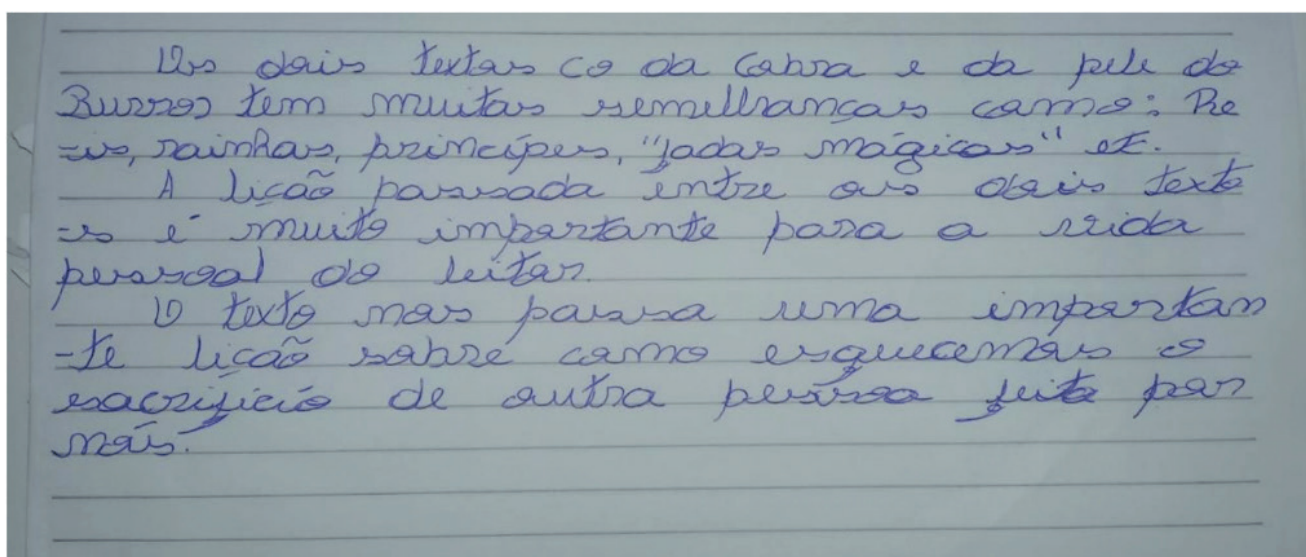 Os dois textos (o da Cabra e da pele do
Burro) tem muitas semelhanças como: Re
-is, rainhas, príncipes, "fadas mágicas" et.
A lição passada entre os dois texto
-s é muito importante para a vida
pessoal do leitor.
O texto nos passa uma importan
-te lição sobre como esquecemos o
sacrifício de outra pessoa feita por
nós.